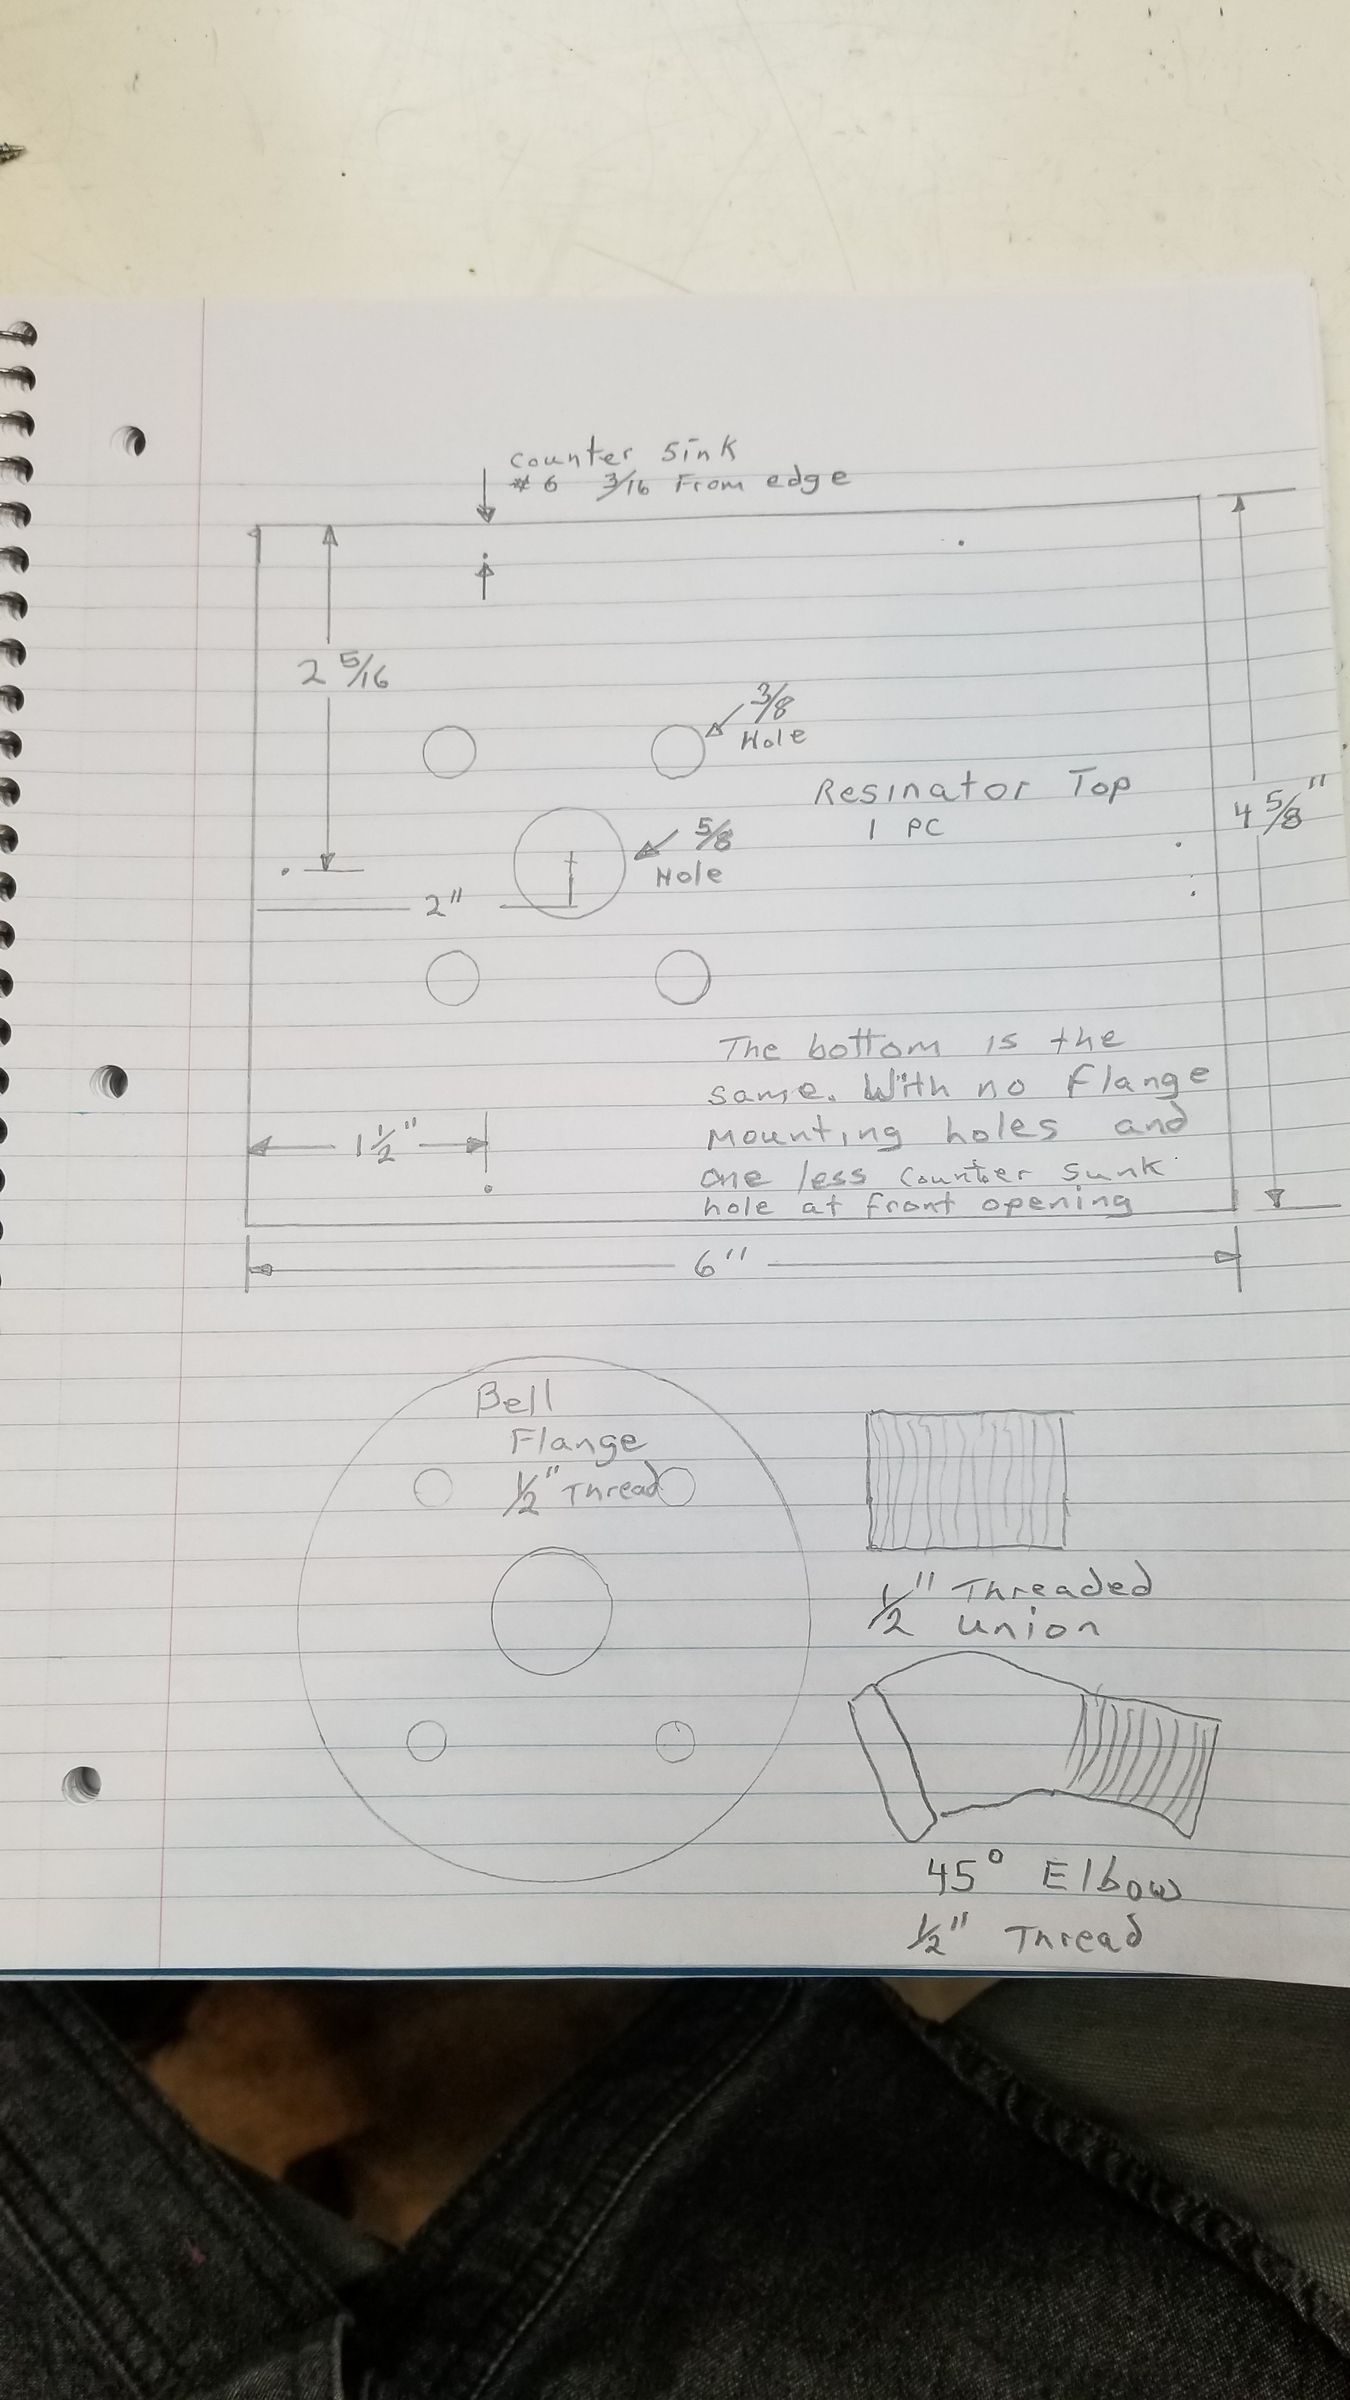 counter sink
#6 3/16 From edge
2 5/16
3/8
Hole
Resinator Top
1 PC
4 5/8"
5/8
Hole
2"
The bottom is the
same. With no Flange
Mounting holes and
one less counter sunk
hole at front opening
1 1/2"
6"
Bell
Flange
1/2" Thread
1/2" Threaded
union
45° Elbow
1/2" Thread